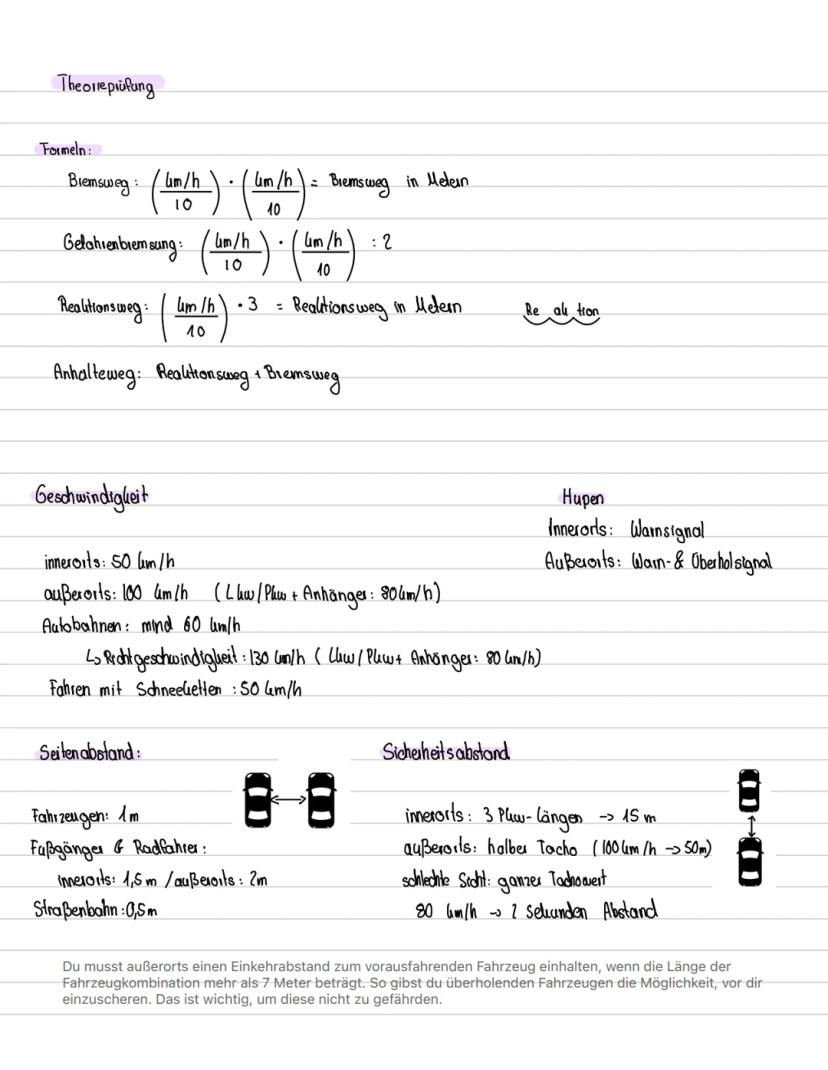 Theorieprüfung
Formeln:
Bremsweg: (km/h / 10) · (km/h / 10) = Bremsweg in Metern
Gefahrenbremsung: (km/h / 10) · (km/h / 10) : 2
Reaktionsweg: (km/h / 10) · 3 = Reaktionsweg in Metern
Re ak tion
Anhalteweg: Reaktionsweg + Bremsweg
Geschwindigkeit
innerorts: 50 km/h
außerorts: 100 km/h (Lkw/Pkw + Anhänger: 80km/h)
Autobahnen: mind 60 km/h
↳ Richtgeschwindigkeit: 130 km/h (Lkw/Pkw+ Anhänger: 80 km/h)
Fahren mit Schneeketten: 50 km/h
Hupen
Innerorts: Warnsignal
Außerorts: Warn- & Überholsignal
Seitenabstand:
Fahrzeugen: 1m
Fußgänger & Radfahrer:
innerorts: 1,5m / außerorts: 2m
Straßenbahn: 0,5m
Sicherheitsabstand
innerorts: 3 Pkw-Längen -> 15 m
außerorts: halber Tacho (100km/h -> 50m)
schlechte Sicht: ganzer Tachowert
80 km/h -> 2 Sekunden Abstand
Du musst außerorts einen Einkehrabstand zum vorausfahrenden Fahrzeug einhalten, wenn die Länge der
Fahrzeugkombination mehr als 7 Meter beträgt. So gibst du überholenden Fahrzeugen die Möglichkeit, vor dir
einzuscheren. Das ist wichtig, um diese nicht zu gefährden.